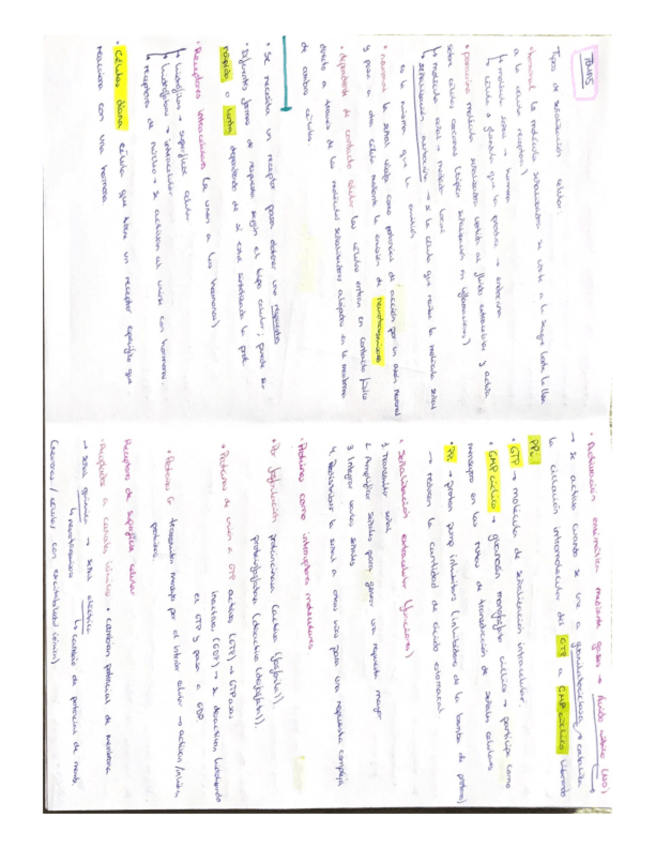 TEMA 15
Tipos de señalización celular:
• hormonal la molécula señalizadora se vierte a la sangre hasta la
a la célula receptora)
↳ molécula señal → hormona
↳ célula o glándula que la produce → endocrina
• paracrina molécula señalizadora vertida al fluido extracelular y actúa
sobre células cercanas (típica señalización en inflamaciones)
↳ molécula señal → mediador local
↳ señalización autocrina → si la célula que recibe la molécula señal
es la misma que la emitió
• neuronal la señal viaja como potencial de acción por un axón neuronal
y pasa a otra célula mediante la emisión de neurotransmisores
• dependiente de contacto celular las células entran en contacto físico
directo a través de las moléculas señalizadoras alojadas en la membrana
de ambas células.
• Se necesita un receptor para obtener una respuesta
• Diferentes formas de respuesta según el tipo celular; puede ser
rápida o lenta dependiendo de si está sintetizando la prot.
• Receptores intracelulares (se unen a las hormonas)
↳ hidrófilas → superficie celular
↳ hidrófobas → intracelular
↳ receptores de núcleo → se activan al unirse con hormonas.
• Células diana célula que tiene un receptor específico que
reacciona con una hormona
• Activación enzimática mediante gases → óxido nítrico (NO)
→ se activa cuando se une a guanilatociclasa → cataliza
la ciclación intramolecular del GTP a GMP cíclico liberando
PPi
• GTP → molécula de señalización intracelular.
• GMP cíclico → guanosín monofosfato cíclico → participa como
mensajero en las rutas de transducción de señales celulares
• PPI → proton pump inhibitors (inhibidores de la bomba de protones)
→ reducen la cantidad de ácido estomacal
• Señalización extracelular (funciones)
1. Transmitir señal
2. Amplificar señales para generar una respuesta mayor
3. Integrar varias señales
4. Redistribuir la señal a otras vías para una respuesta compleja
• Proteínas como interruptores moleculares
• Por fosforilación proteincinasa (activa (fosforila)).
proteinfosfatasa (desactiva (desfosforila)).
• Proteínas de unión a GTP activas (GTP) → GTPasas
inactivas (GDP) → se desactivan hidrolizando
el GTP y pasa a GDP.
• Proteínas G
Receptores de superficie celular
• Acoplados a canales iónicos • cambian potencial de membrana
→ señal química → señal eléctrica
↳ neurotransmisor ↳ cambio de potencial de memb.
(neuronas / células con excitabilidad iónica)